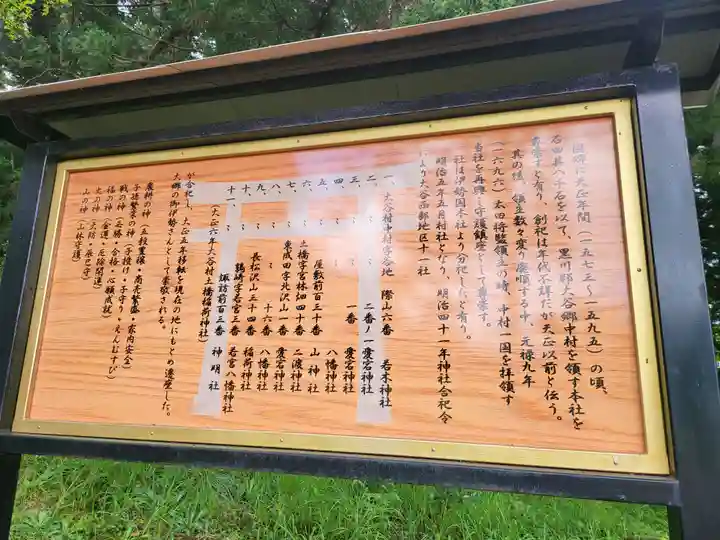 国卿に天正年間(一五七三〜一五九五)の頃、
石田其八千石を以て、黒川郡大谷郷中村を領す本社を
尊崇すと有り、創祀は年代不詳だが天正以前と伝う。
其の後、領主数々変り慶順する中、元禄九年
(一六九六)太田将監領主の時、中村一国を拝領す
当社を再興し守護鎮座をして尊崇す。
社は伊勢国本社より分祀したと有り。
明治五年五月村社となり、明治四十一年神社合祀令
により大谷西部地区十一社
一、大谷村中村屋敷地 際山六番 若木神社
二、〃 二番ノ一愛宕神社
三、〃 一番 愛宕神社
四、〃 八幡神社
五、〃 屋敷前百三十番 山神社
六、土橋字宮林畑四十番 二渡神社
七、東成田字北沢山一番 愛宕神社
八、〃 十六番 八幡神社
九、〃 長松沢山三十四番 稲荷神社
十、〃 鶴崎字若宮三番 若宮八幡神社
十一、〃 諏訪前百三番 神明社
(大正六年大谷村土橋稲荷神社)
が合祀し、大正五年移転を現在の地にもとめ遷座した。
大郷の御伊勢さんとして崇敬される。
農耕の神(五穀豊穣・商売繁盛・家内安全)
子孫繁栄の神(子授け・子守り・えんむすび)
戦の神(必勝・合格・心願成就)
福の神(金運・厄除開運)
火の神(火防・辰巳守)
山の神(山林守護)